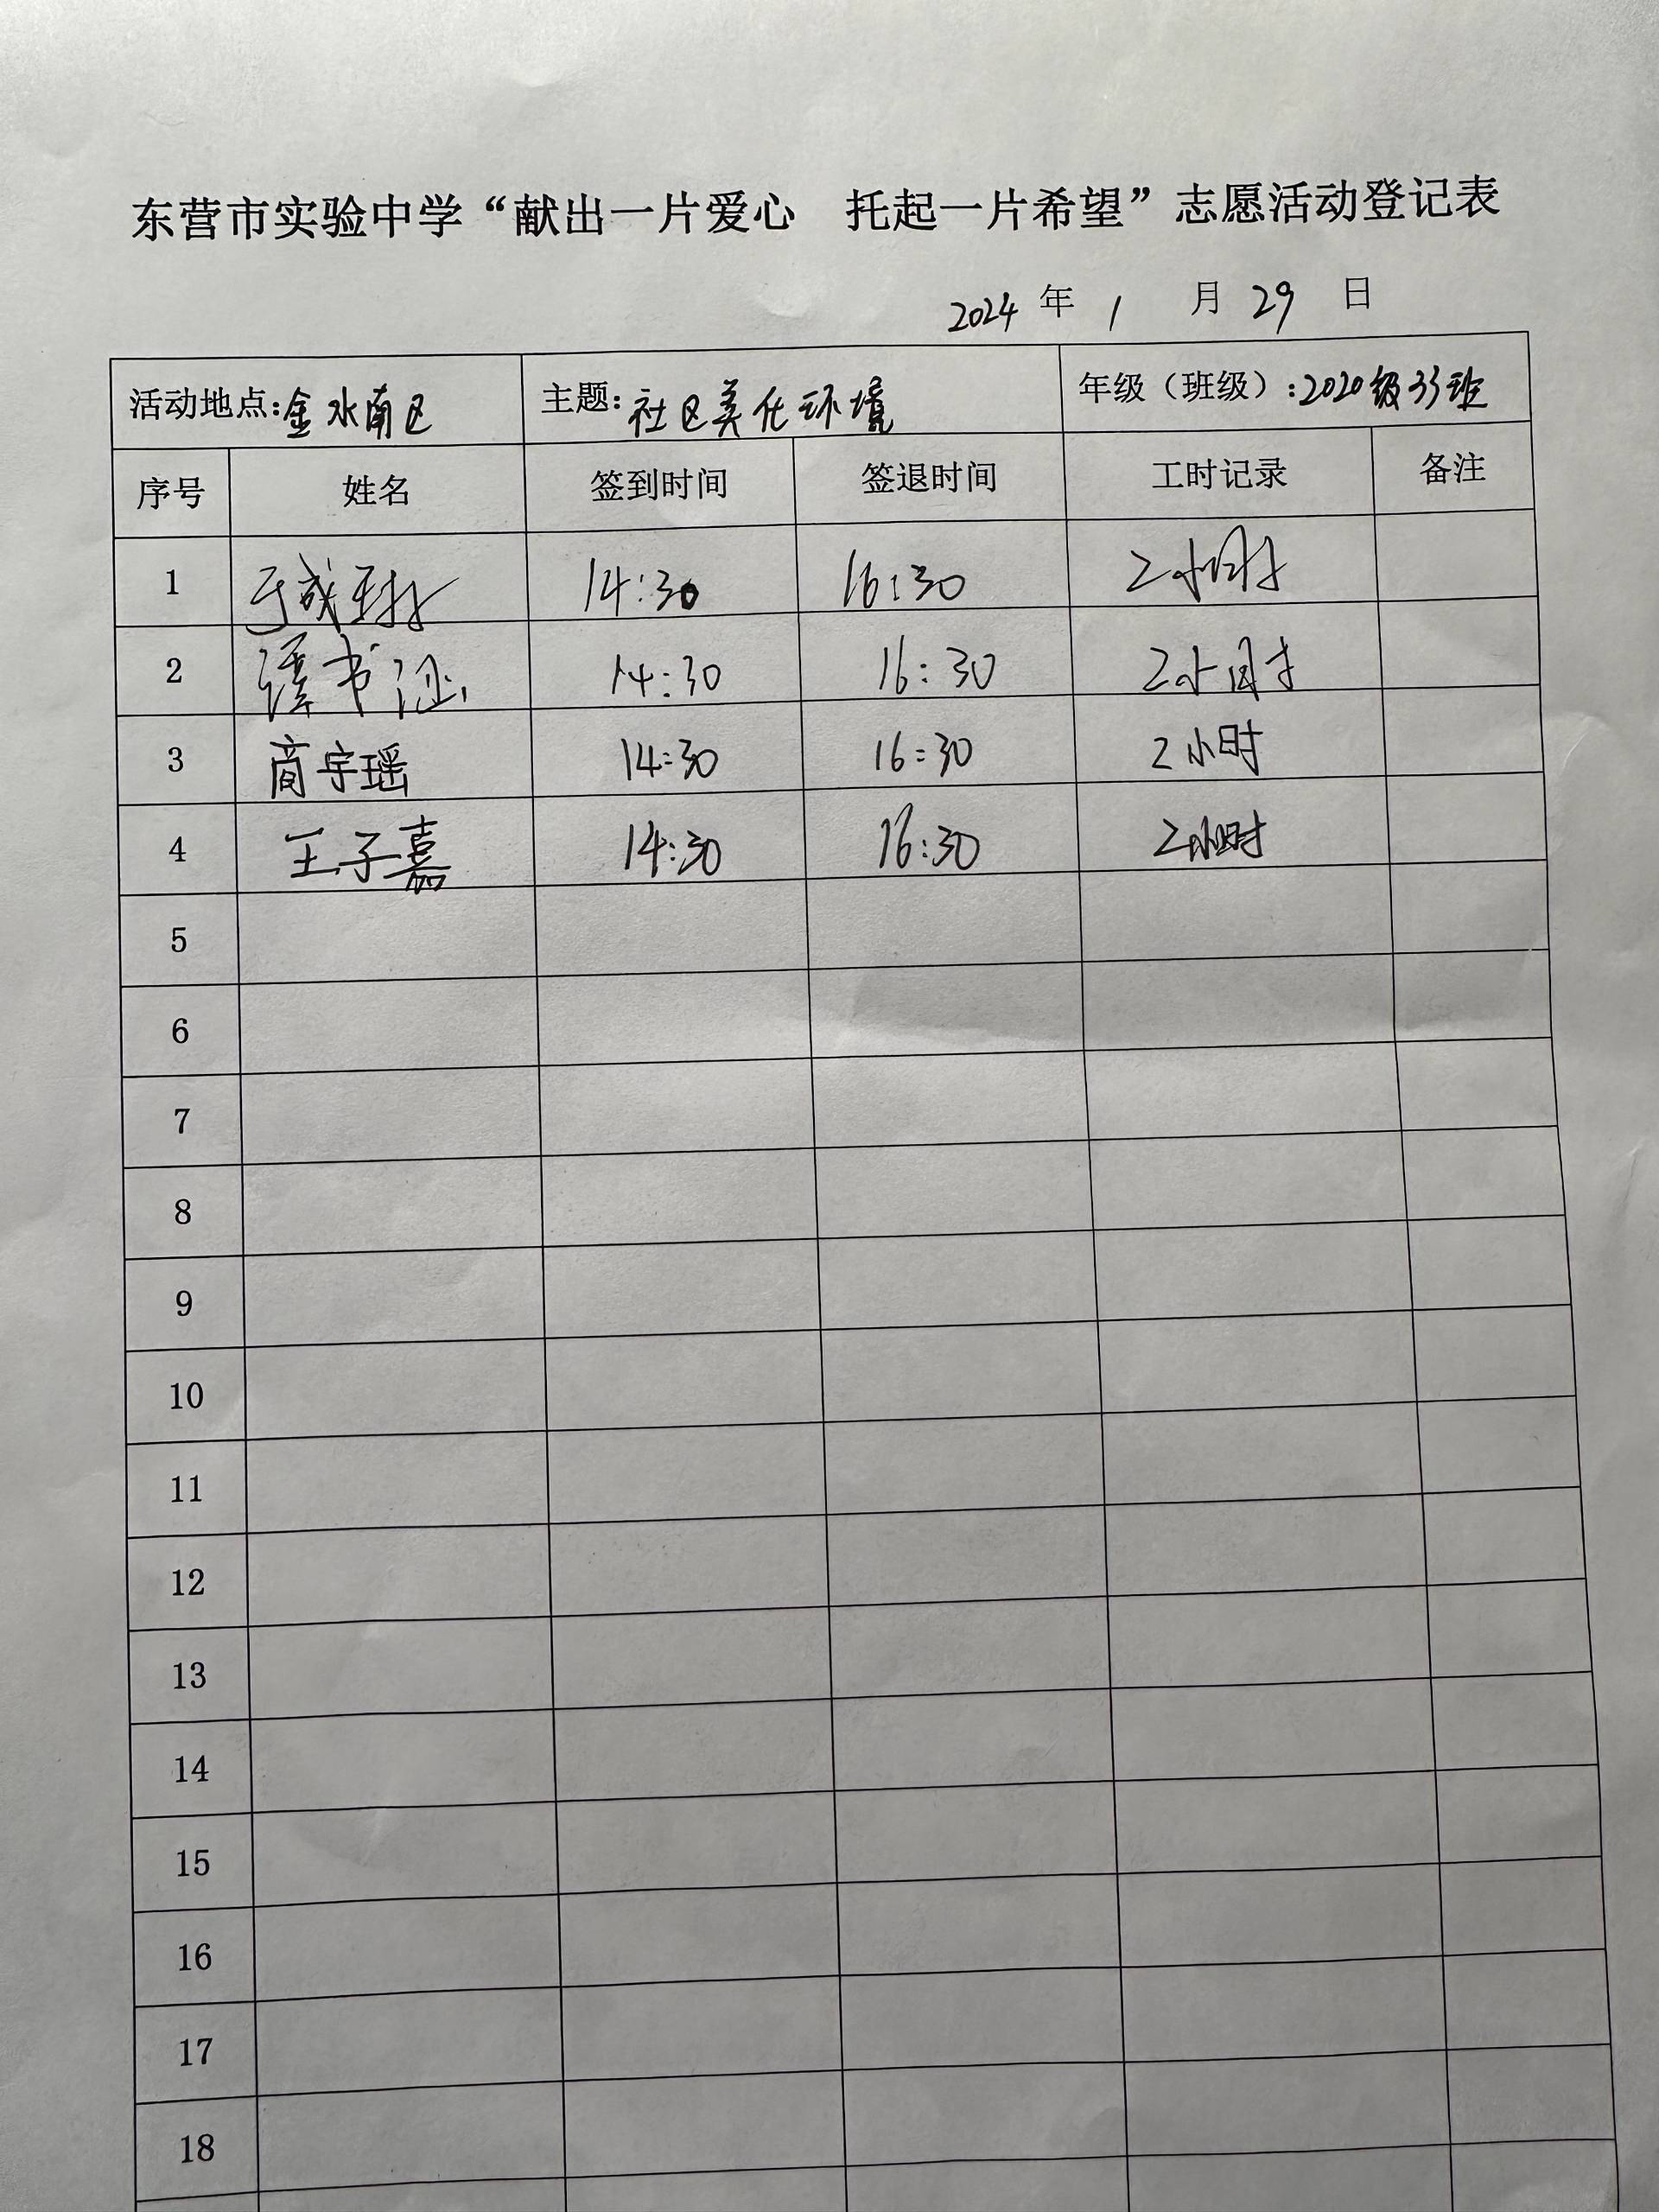 东营市实验中学“献出一片爱心 托起一片希望”志愿活动登记表
2024 年 1 月 29 日
活动地点:金水南区 主题:社区美化环境 年级（班级）:2020级33班
序号 姓名 签到时间 签退时间 工时记录 备注
1 于成 14:30 16:30 2小时
2 谭书 14:30 16:30 2小时
3 商宇瑶 14:30 16:30 2小时
4 王子嘉 14:30 16:30 2小时
5
6
7
8
9
10
11
12
13
14
15
16
17
18